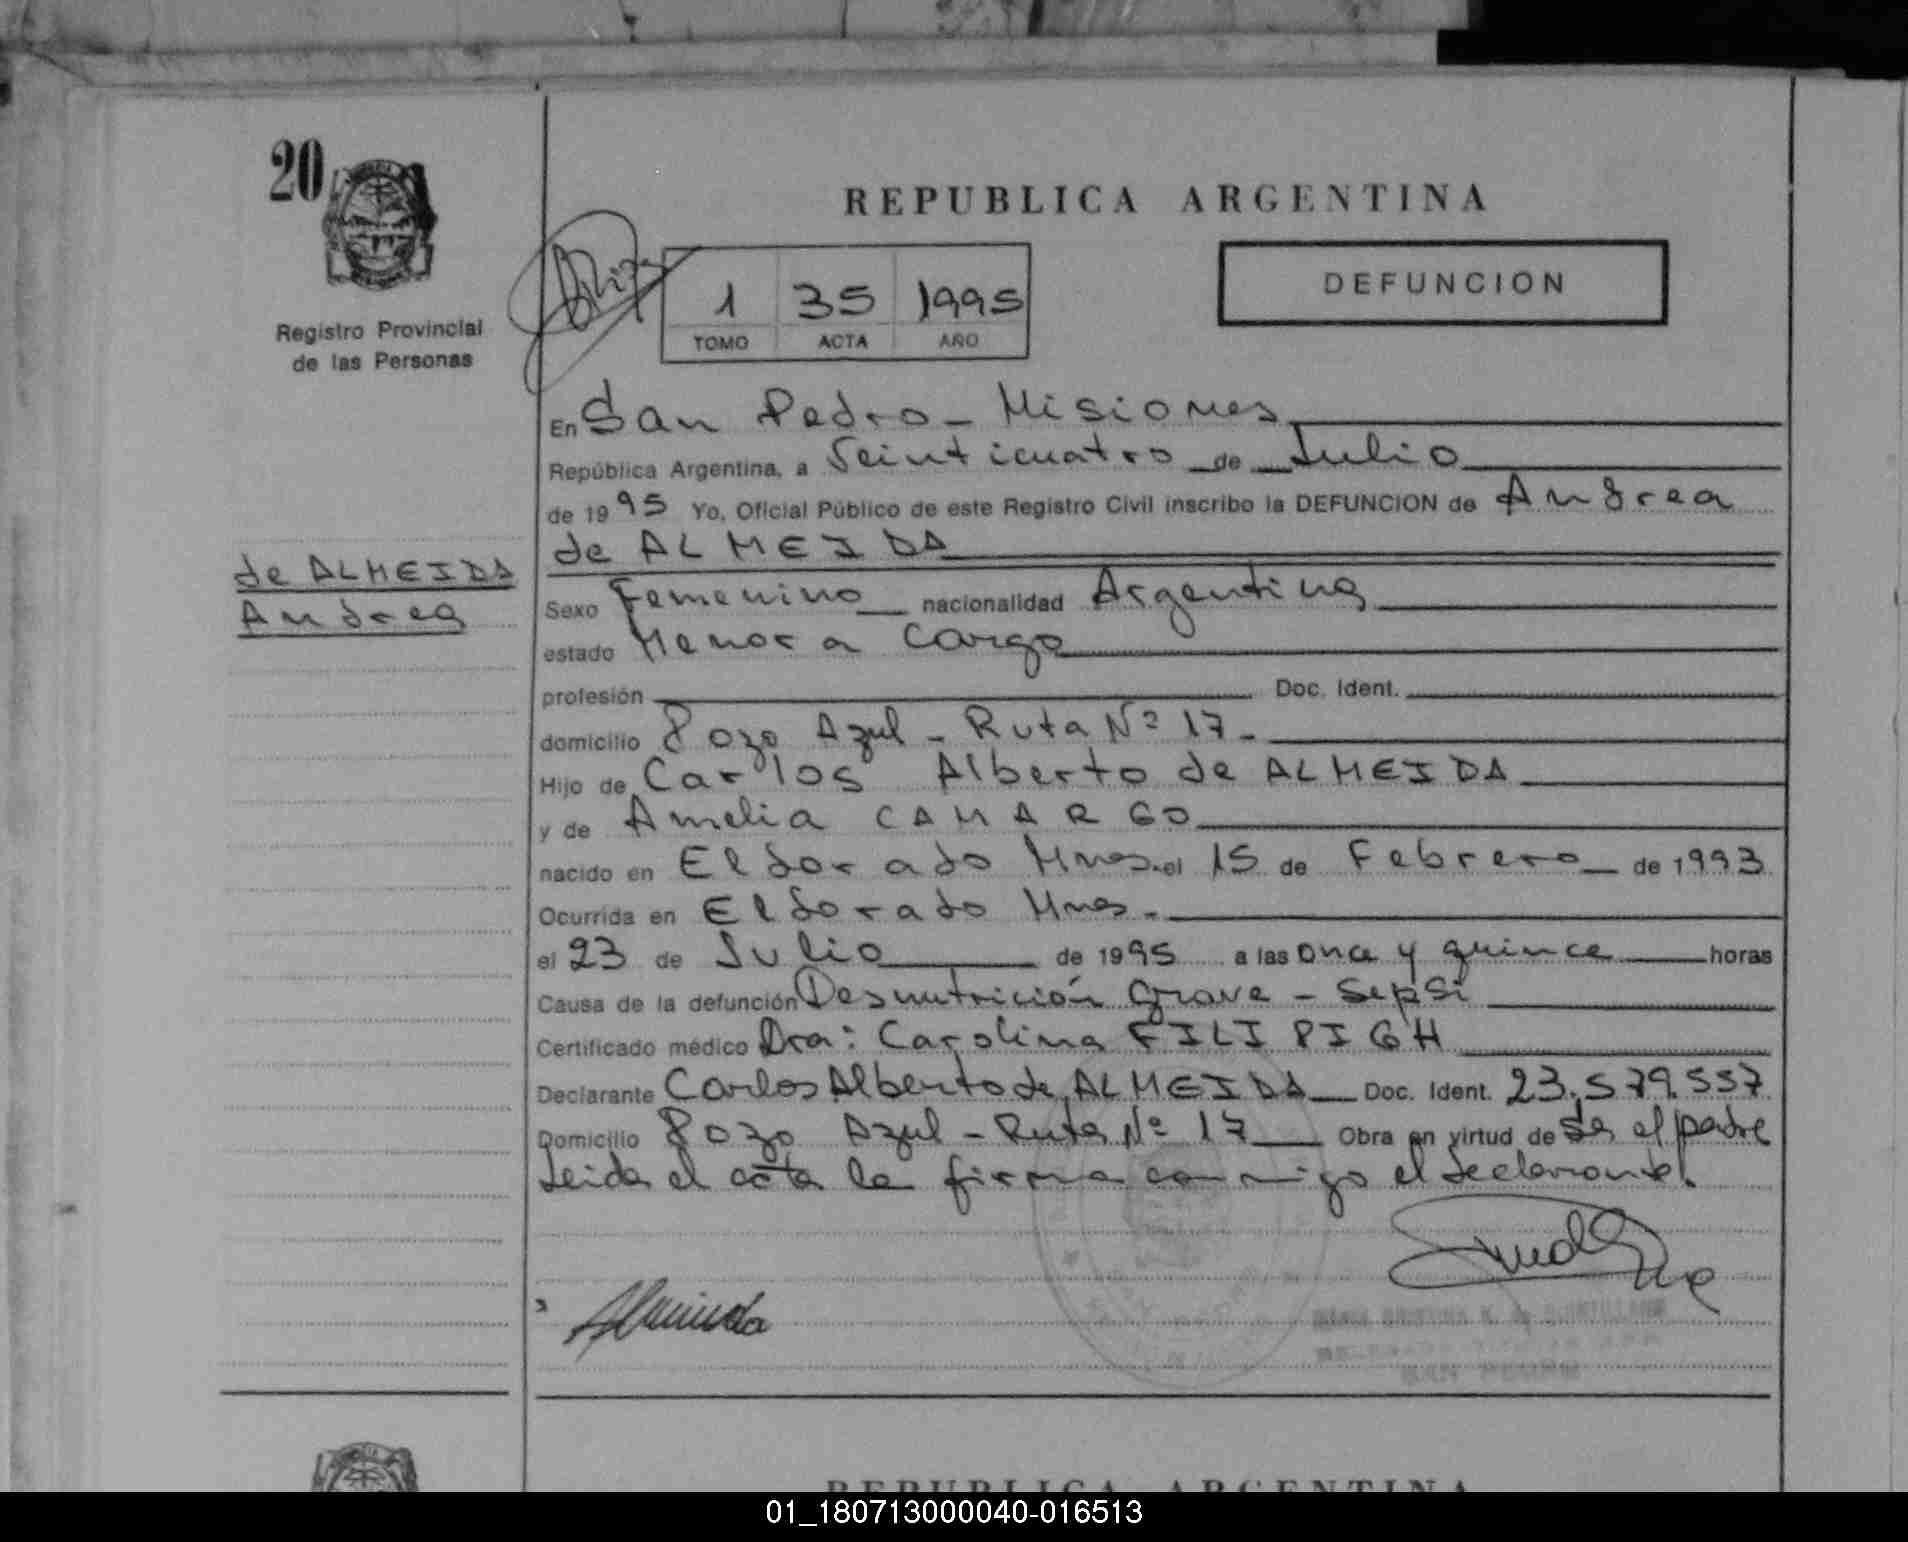 20
REPUBLICA ARGENTINA
Registro Provincial
de las Personas
1 35 1995
TOMO ACTA AÑO
DEFUNCION
En San Pedro - Misiones
República Argentina, a Veinticuatro de Julio
de 1995 Yo, Oficial Público de este Registro Civil inscribo la DEFUNCION de Andrea
de ALMEIDA
de ALMEIDA
Andrea
Sexo Femenino nacionalidad Argentina
estado Menor a cargo
profesión Doc. Ident.
domicilio Pozo Azul - Ruta Nº 17 -
Hijo de Carlos Alberto de ALMEIDA
y de Amelia CAMARGO
nacido en Eldorado Mnes. el 15 de Febrero de 1993
Ocurrida en Eldorado Mnes. -
el 23 de Julio de 1995 a las once y quince horas
Causa de la defunción Desnutrición grave - Sepsi
Certificado médico Dra: Carolina FILIPIGH
Declarante Carlos Alberto de ALMEIDA Doc. Ident. 23.579.557
Domicilio Pozo Azul - Ruta Nº 17 Obra en virtud de ser el padre
Leida el acta la firma conmigo el declarante.
Almeida
SAN PEDRO
REPUBLICA ARGENTINA
01_180713000040-016513